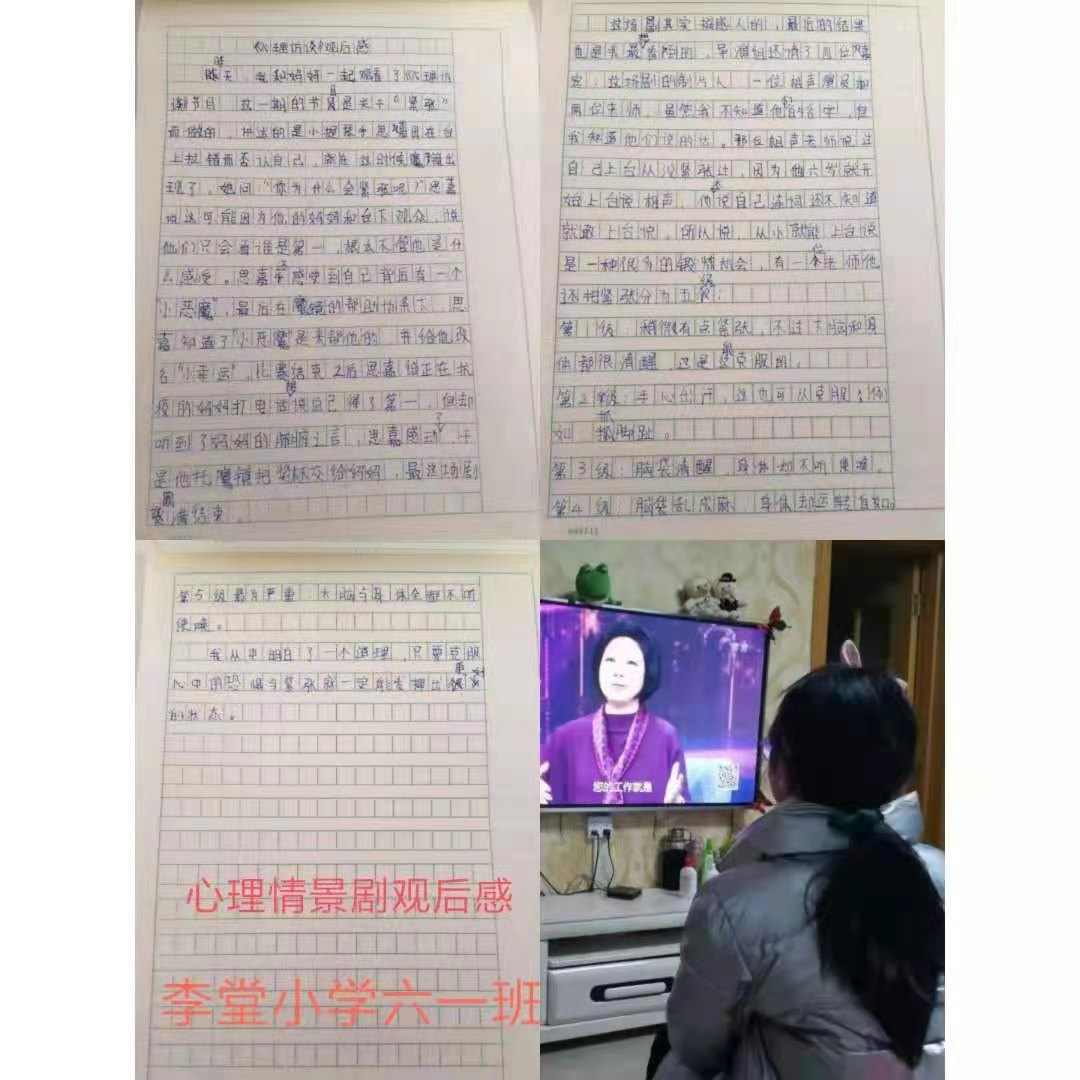 心理访谈观后感
昨天,我和妈妈一起观看了心理访
谈节目,这一期的节目是关于“紧张”
而做的,讲述的是小提琴手思嘉因在台
上拉错而否认自己,就在这时候魔镜出
现了,她问:“你为什么会紧张呢?”思嘉
说这可能因为他的妈妈和台下观众,说
他们只会看谁是第一,根本不管他是什
么感受。思嘉感受到自己背后有一个
“小恶魔”,最后在魔镜的帮助下,思
嘉知道了“小恶魔”是来帮他的,并给他改
名“小幸运”,比赛结束之后思嘉给正在抗
疫的妈妈打电话想说自己得了第一,但却
听到了妈妈的肺腑之言,思嘉感动了,于
是他托魔镜把奖杯交给妈妈,最这场剧
圆满结束。
这场剧其实挺感人的,最后的结果
也是我最想看到的,导演组还请了几位嘉
宾:这场剧的制片人、一位相声演员和
两位老师,虽然我不知道他们的名字,但
我知道他们说的话。那位相声老师说过
自己上台从没紧张过,因为他六岁就开
始上台说相声,他说自己连词还不知道
就敢上台说。所以说,从小就能上台说
是一种很多的锻炼机会,有一位老师他
还将紧张分为五级:
第1级:稍微有点紧张,不过大脑和身
体都很清醒,这是最好克服的;
第2级:手心出汗,这也可以克服,例
如:抓脚趾。
第3级:脑袋清醒,身体却不听使唤。
第4级:脑袋乱成麻,身体却运转自如
第5级最为严重:大脑与身体全都不听
使唤。
我从中明白了一个道理,只要克服
心中的恐惧与紧张就一定能发挥出更好
的状态。
心理情景剧观后感
李堂小学六一班
您的工作就是